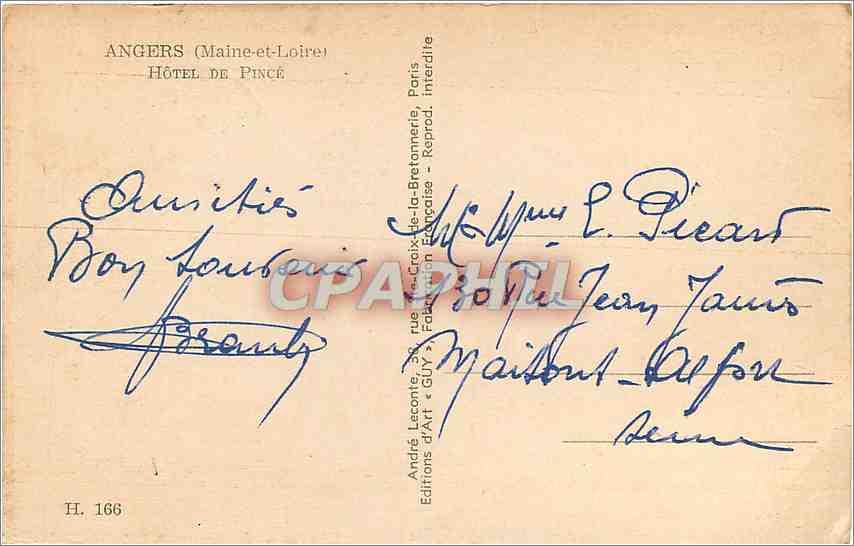 ANGERS (Maine-et-Loire)
HÔTEL DE PINCÉ
Amitiés
Bon Souvenir
H. 166
André Leconte, 38, rue Ste-Croix-de-la-Bretonnerie, Paris
Editions d'Art « GUY », Fabrication Française - Reprod. interdite
CPAPHIL
M & Mme L. Picard
Rue Jean Jaurès
Maisons-Alfort
Seine